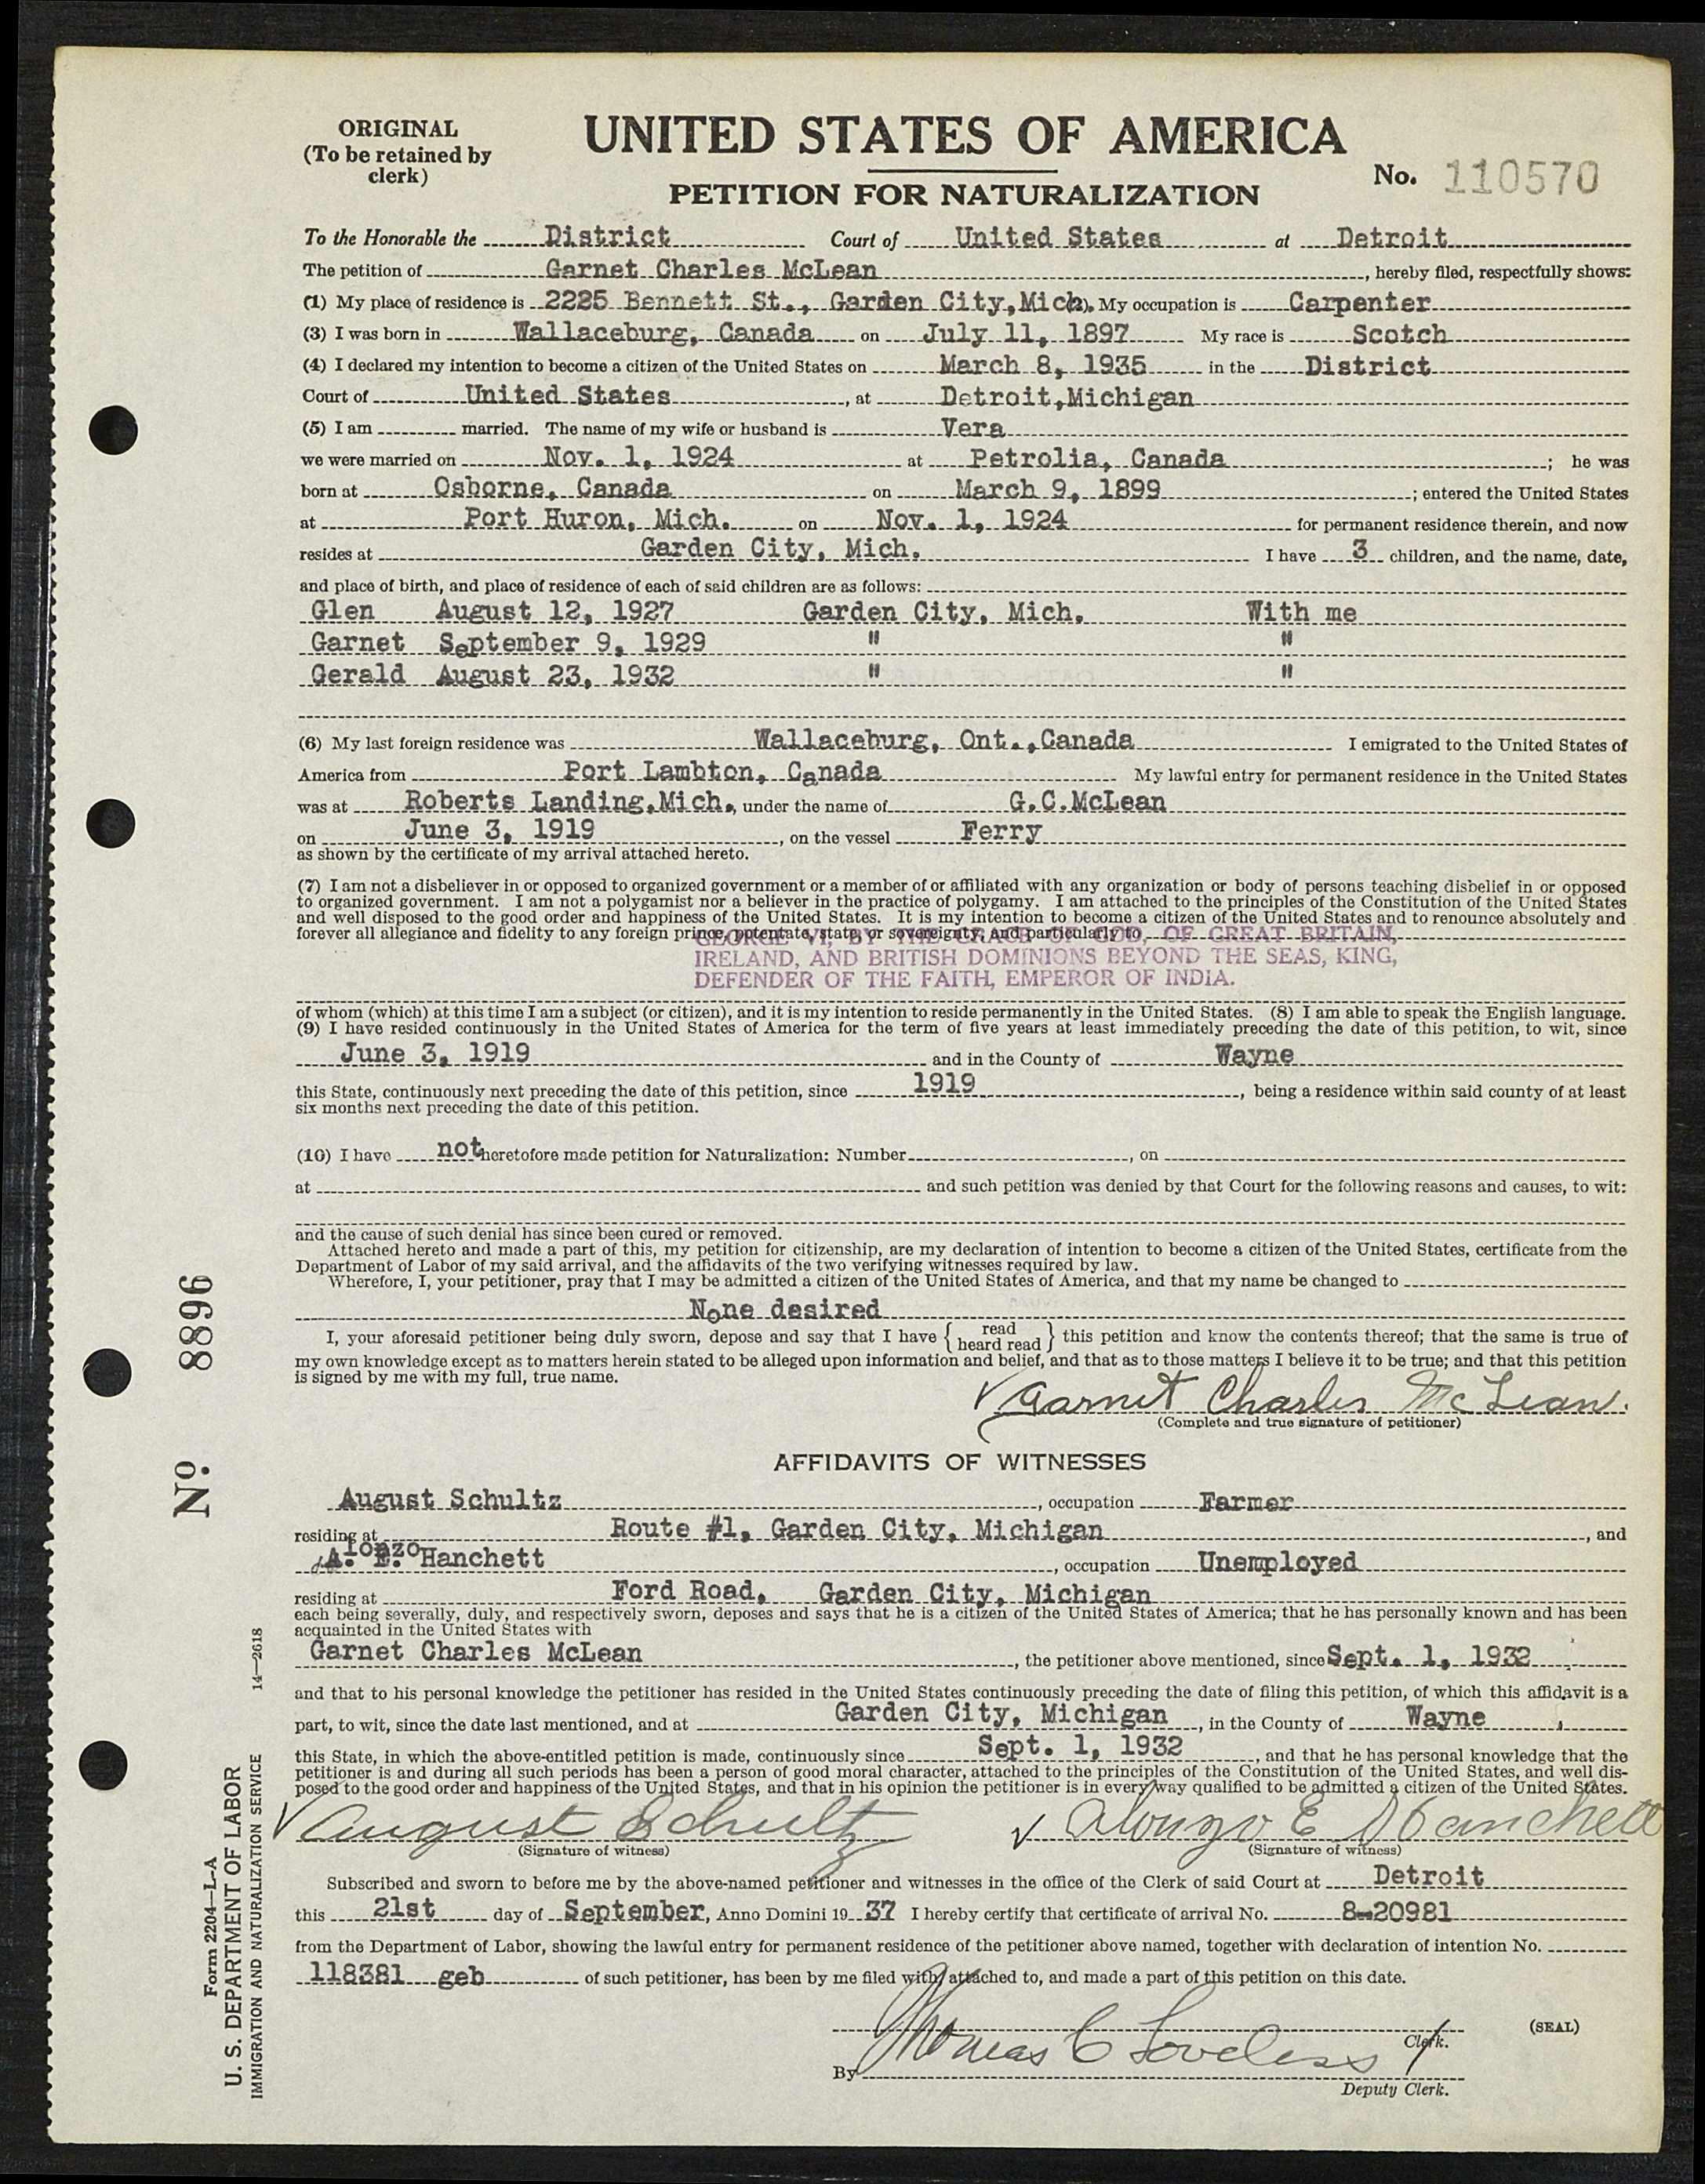 ORIGINAL
(To be retained by
clerk)
UNITED STATES OF AMERICA
No. 110570
PETITION FOR NATURALIZATION
To the Honorable the District Court of United States at Detroit
The petition of Garnet Charles McLean, hereby filed, respectfully shows:
(1) My place of residence is 2225 Bennett St., Garden City, Mich. (2) My occupation is Carpenter
(3) I was born in Wallaceburg, Canada on July 11, 1897 My race is Scotch
(4) I declared my intention to become a citizen of the United States on March 8, 1935 in the District
Court of United States, at Detroit, Michigan
(5) I am married. The name of my wife or husband is Vera
we were married on Nov. 1, 1924 at Petrolia, Canada; he was
born at Osborne, Canada on March 9, 1899; entered the United States
at Port Huron, Mich. on Nov. 1, 1924 for permanent residence therein, and now
resides at Garden City, Mich. I have 3 children, and the name, date,
and place of birth, and place of residence of each of said children are as follows:
Glen August 12, 1927 Garden City, Mich. With me
Garnet September 9, 1929 " "
Gerald August 23, 1932 " "
(6) My last foreign residence was Wallaceburg, Ont., Canada I emigrated to the United States of
America from Port Lambton, Canada My lawful entry for permanent residence in the United States
was at Roberts Landing, Mich., under the name of G.C.McLean
on June 3, 1919, on the vessel Ferry
as shown by the certificate of my arrival attached hereto.
(7) I am not a disbeliever in or opposed to organized government or a member of or affiliated with any organization or body of persons teaching disbelief in or opposed
to organized government. I am not a polygamist nor a believer in the practice of polygamy. I am attached to the principles of the Constitution of the United States
and well disposed to the good order and happiness of the United States. It is my intention to become a citizen of the United States and to renounce absolutely and
forever all allegiance and fidelity to any foreign prince, potentate, state, or sovereignty, and particularly to
GEORGE VI, BY THE GRACE OF GOD, OF GREAT BRITAIN,
IRELAND, AND BRITISH DOMINIONS BEYOND THE SEAS, KING,
DEFENDER OF THE FAITH, EMPEROR OF INDIA.
of whom (which) at this time I am a subject (or citizen), and it is my intention to reside permanently in the United States. (8) I am able to speak the English language.
(9) I have resided continuously in the United States of America for the term of five years at least immediately preceding the date of this petition, to wit, since
June 3, 1919 and in the County of Wayne
this State, continuously next preceding the date of this petition, since 1919, being a residence within said county of at least
six months next preceding the date of this petition.
(10) I have not heretofore made petition for Naturalization: Number, on
at and such petition was denied by that Court for the following reasons and causes, to wit:
and the cause of such denial has since been cured or removed.
Attached hereto and made a part of this, my petition for citizenship, are my declaration of intention to become a citizen of the United States, certificate from the
Department of Labor of my said arrival, and the affidavits of the two verifying witnesses required by law.
Wherefore, I, your petitioner, pray that I may be admitted a citizen of the United States of America, and that my name be changed to
None desired
I, your aforesaid petitioner being duly sworn, depose and say that I have { read heard read } this petition and know the contents thereof; that the same is true of
my own knowledge except as to matters herein stated to be alleged upon information and belief, and that as to those matters I believe it to be true; and that this petition
is signed by me with my full, true name.
Garnet Charles McLean.
(Complete and true signature of petitioner)
AFFIDAVITS OF WITNESSES
August Schultz, occupation Farmer
residing at Route #1, Garden City, Michigan, and
Alonzo E. Hanchett, occupation Unemployed
residing at Ford Road, Garden City, Michigan
each being severally, duly, and respectively sworn, deposes and says that he is a citizen of the United States of America; that he has personally known and has been
acquainted in the United States with
Garnet Charles McLean, the petitioner above mentioned, since Sept. 1, 1932
and that to his personal knowledge the petitioner has resided in the United States continuously preceding the date of filing this petition, of which this affidavit is a
part, to wit, since the date last mentioned, and at Garden City, Michigan, in the County of Wayne,
this State, in which the above-entitled petition is made, continuously since Sept. 1, 1932, and that he has personal knowledge that the
petitioner is and during all such periods has been a person of good moral character, attached to the principles of the Constitution of the United States, and well dis-
posed to the good order and happiness of the United States, and that in his opinion the petitioner is in every way qualified to be admitted a citizen of the United States.
August Schultz Alonzo E Hanchett
(Signature of witness) (Signature of witness)
Subscribed and sworn to before me by the above-named petitioner and witnesses in the office of the Clerk of said Court at Detroit
this 21st day of September, Anno Domini 1937 I hereby certify that certificate of arrival No. 8-20981
from the Department of Labor, showing the lawful entry for permanent residence of the petitioner above named, together with declaration of intention No.
118381 geb of such petitioner, has been by me filed with, attached to, and made a part of this petition on this date.
Clerk.
(SEAL)
By Thomas C Loveless
Deputy Clerk.
No. 8896
Form 2204—L-A
U. S. DEPARTMENT OF LABOR
IMMIGRATION AND NATURALIZATION SERVICE
14—2618